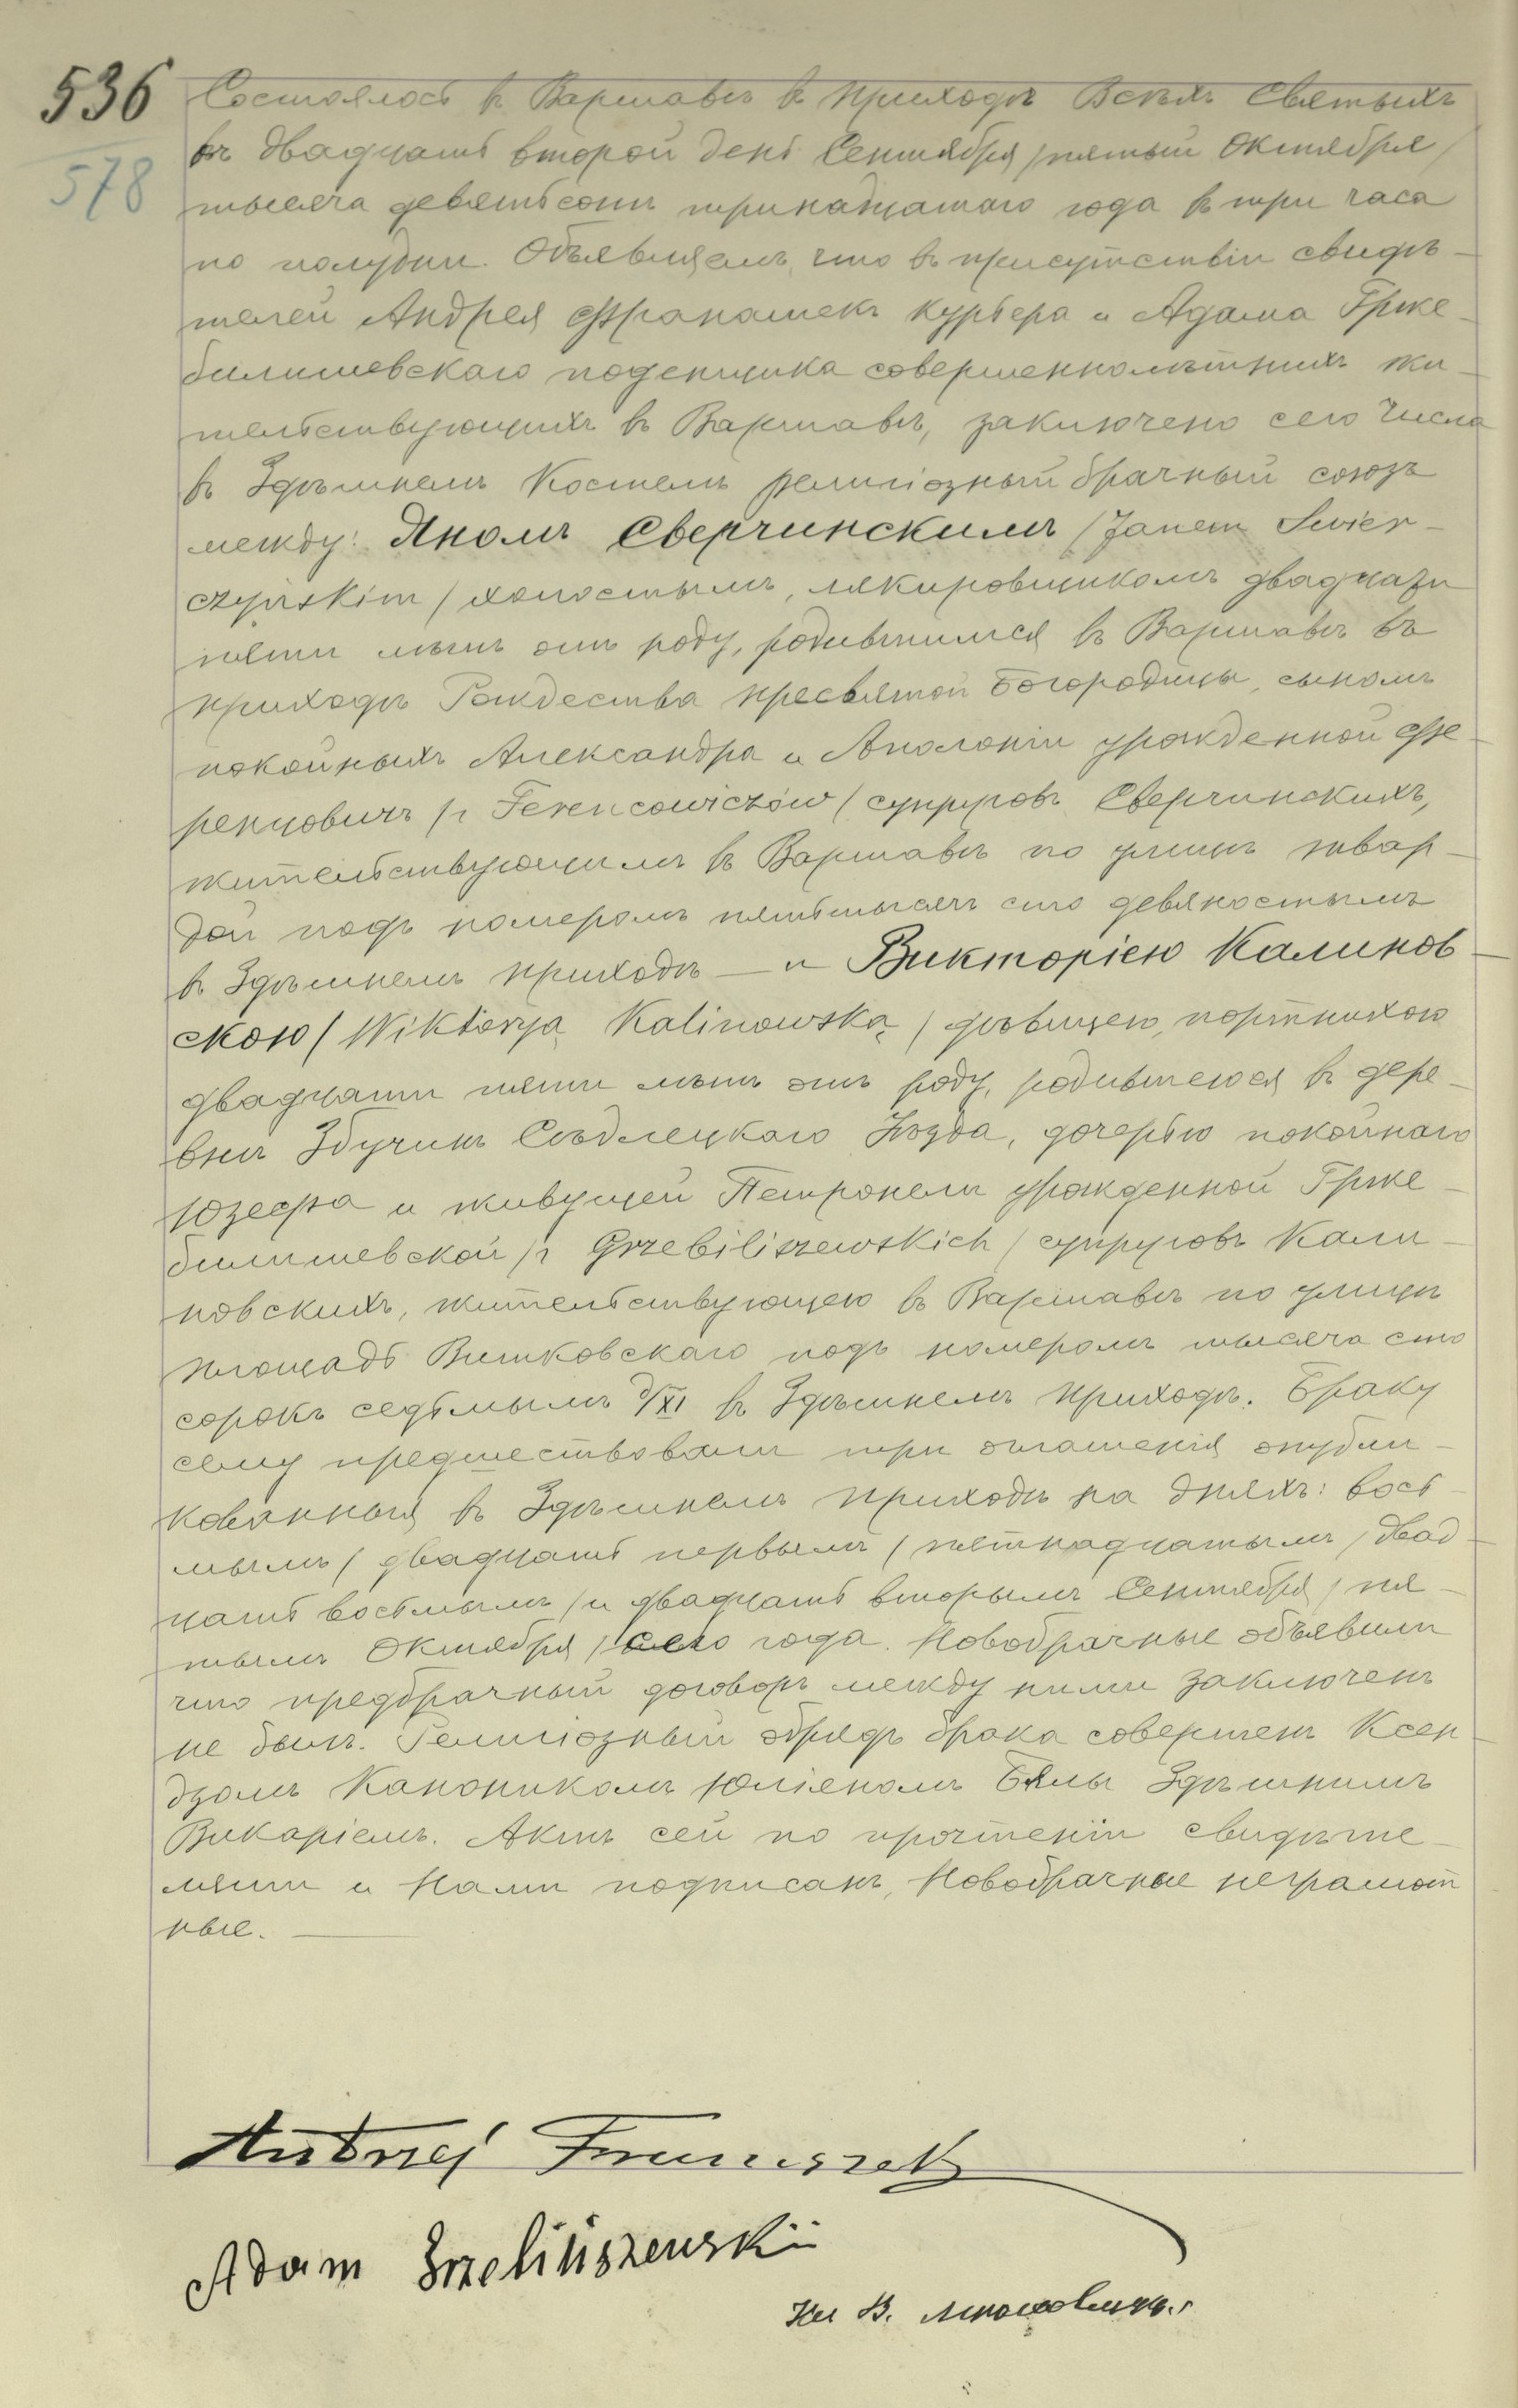 536
578
Состоялось въ Варшавѣ въ приходѣ Всѣхъ Святыхъ
въ двадцать второй день Сентября /пятый Октября/
тысяча девятьсотъ тринадцатаго года въ три часа
по полудни. Объявляемъ, что въ присутствіи свидѣ-
телей Андрея Франашекъ курьера и Адама Грже-
билишевскаго поденщика совершеннолѣтнихъ жи-
тельствующихъ въ Варшавѣ, заключенъ сего числа
въ Здѣшнемъ Костелѣ религіозный брачный союзъ
между: Яномъ Сверчинскимъ /Janem Swier-
czyńskim/ холостымъ, лякировщикомъ двадцати
пяти лѣтъ отъ роду, родившимся въ Варшавѣ въ
приходѣ Рождества пресвятой Богородицы, сыномъ
покойныхъ Александра и Аполоніи урожденной Фе-
ренцовичъ /z Ferencowiczów/ супруговъ Сверчинскихъ,
жительствующимъ въ Варшавѣ по улицѣ твар-
дой подъ номеромъ пятьтысячъ сто девяностымъ
въ Здѣшнемъ приходѣ — и Викторіею Калинов-
скою /Wiktorya Kalinowską/ дѣвицею, портнихою
двадцати пяти лѣтъ отъ роду, родившеюся въ дере-
вни Збучинъ Сѣдлецкаго Уѣзда, дочерью покойнаго
Юзефа и живущей Петронели урожденной Грже-
билишевской /z Grzebiliszewskich/ супруговъ Кали-
новскихъ, жительствующею въ Варшавѣ по улицѣ
площадь Витковскаго подъ номеромъ тысяча сто
сорокъ седьмымъ д/XI въ Здѣшнемъ приходѣ. Браку
сему предшествовали три оглашенія опубли-
кованныя въ Здѣшнемъ приходѣ на дняхъ: вось-
мымъ /двадцать первымъ/ пятнадцатымъ /двад-
цать восьмымъ/ и двадцать вторымъ Сентября /пя-
тымъ Октября/ сего года. Новобрачные объявили
что предбрачный договоръ между ними заключенъ
не былъ. Религіозный обрядъ брака совершенъ Ксен-
дзомъ Каноникомъ Юліяномъ Бялы Здѣшнимъ
Викаріемъ. Актъ сей по прочтеніи свидѣте-
лями и Нами подписанъ, Новобрачные неграмот
ные.
Andrzej Franaszek
Adam Grzebiliszewski
Кс В.